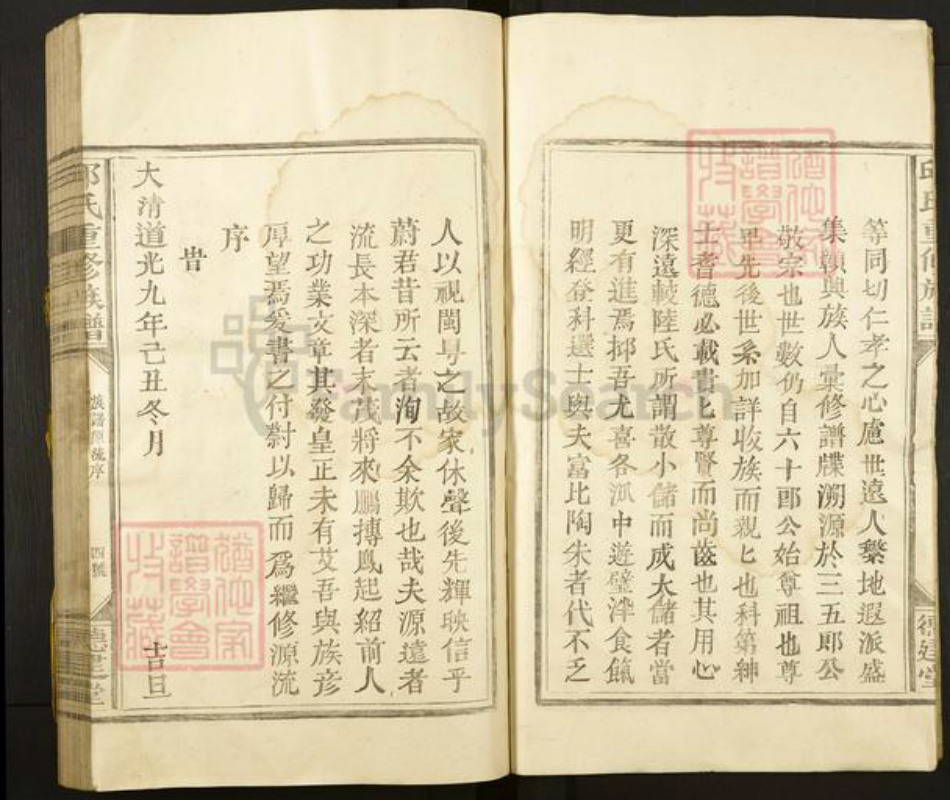 等同切仁孝之心慮世遠人繁地遐派盛
集顧與族人彙修譜牒溯源於三五郎公
敬宗也世數仍自六十郎公始尊祖也尊
甲先後世系加詳收族而親匕也科第紳
士耆德必載書匕尊賢而尚齒也其用心
深遠較陸氏所謂散小儲而成大儲者當
更有進焉抑吾尤喜各派中遊璧泮食餼
明經登科選士與夫富比陶朱者代不乏
人以視閩粤之故家休聲後先輝映信乎
蔚君昔所云者洵不余欺也哉夫源遠者
流長本深者末茂將來鵬摶鳳起紹前人
之功業文章其發皇正未有艾吾與族彥
厚望焉爰書之付對以歸而為繼修源流
序
旹
大清道光九年己丑冬月 吉旦
邱氏重修族譜
族譜原流序
四號
德建堂
邱氏重修族譜
德建堂
猶他家
譜學會
收藏
猶他家
譜學會
收藏
FamilySearch